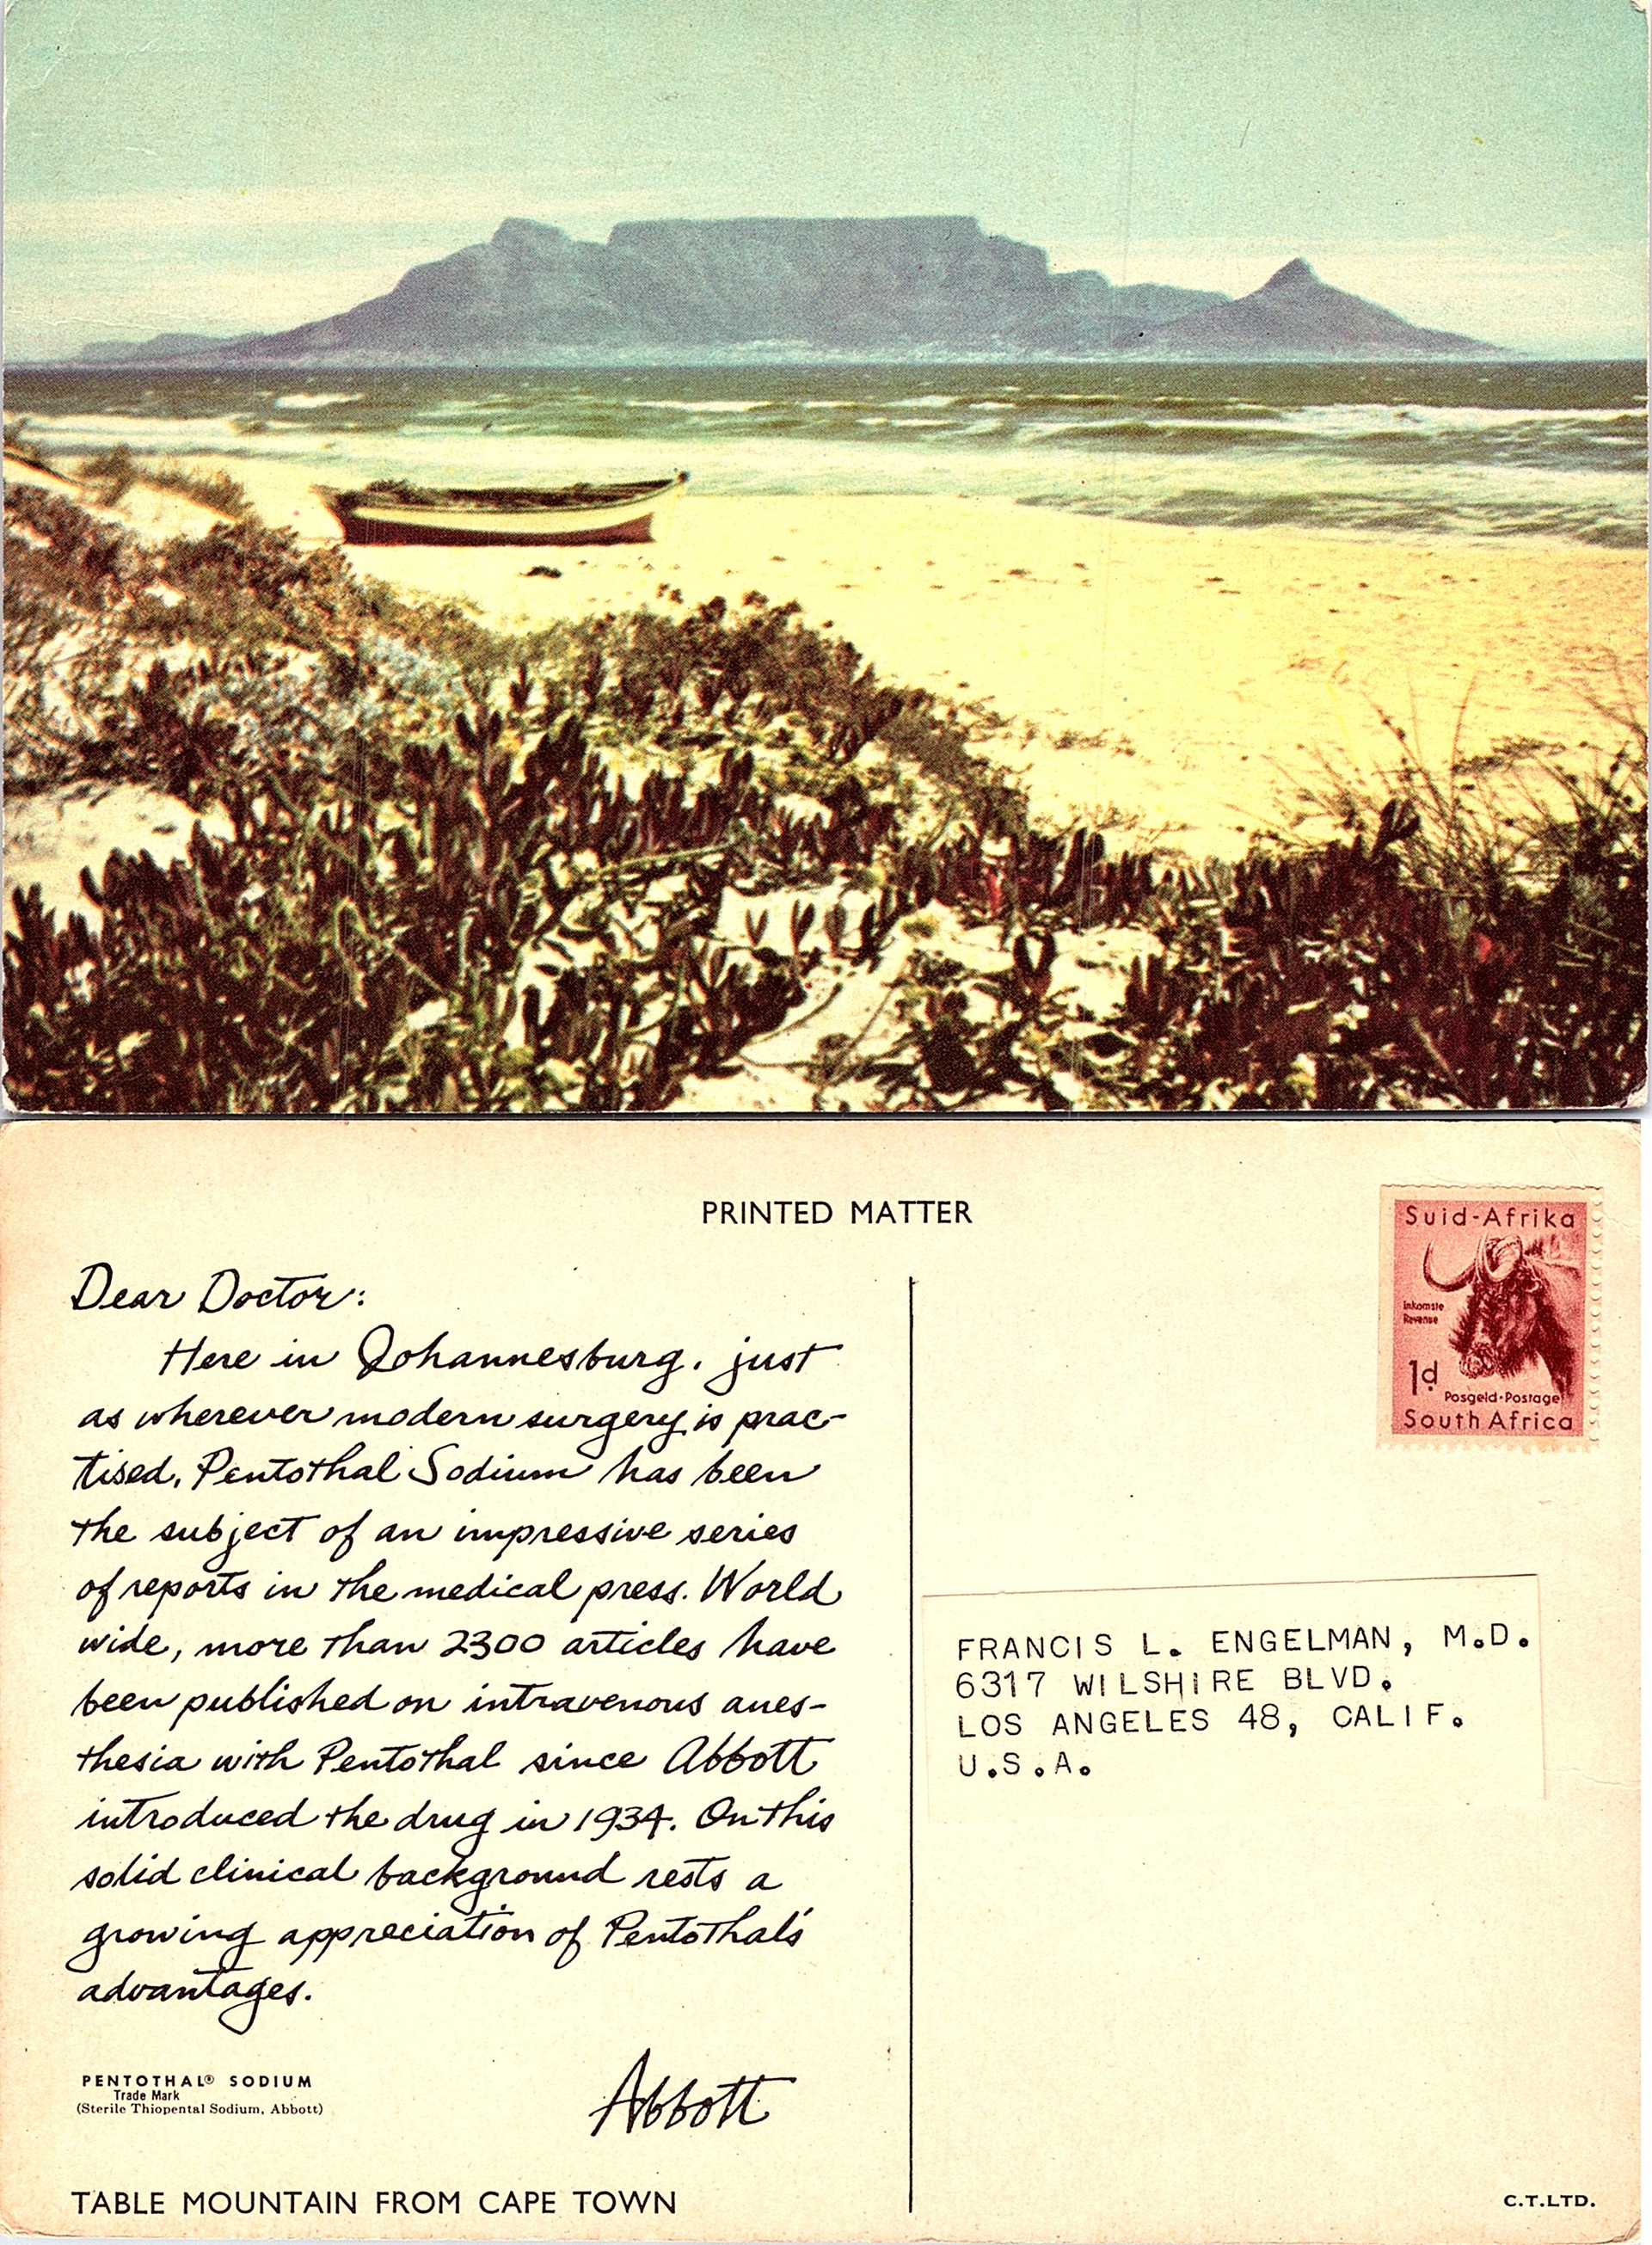 PRINTED MATTER
Suid-Afrika
Inkomste
Revenue
1d
Posgeld·Postage
South Africa
Dear Doctor:
Here in Johannesburg, just
as wherever modern surgery is prac-
tised, Pentothal Sodium has been
the subject of an impressive series
of reports in the medical press. World
wide, more than 2300 articles have
been published on intravenous anes-
thesia with Pentothal since Abbott
introduced the drug in 1934. On this
solid clinical background rests a
growing appreciation of Pentothal's
advantages.
Abbott
PENTOTHAL® SODIUM
Trade Mark
(Sterile Thiopental Sodium, Abbott)
TABLE MOUNTAIN FROM CAPE TOWN
FRANCIS L. ENGELMAN, M.D.
6317 WILSHIRE BLVD.
LOS ANGELES 48, CALIF.
U.S.A.
C.T.LTD.